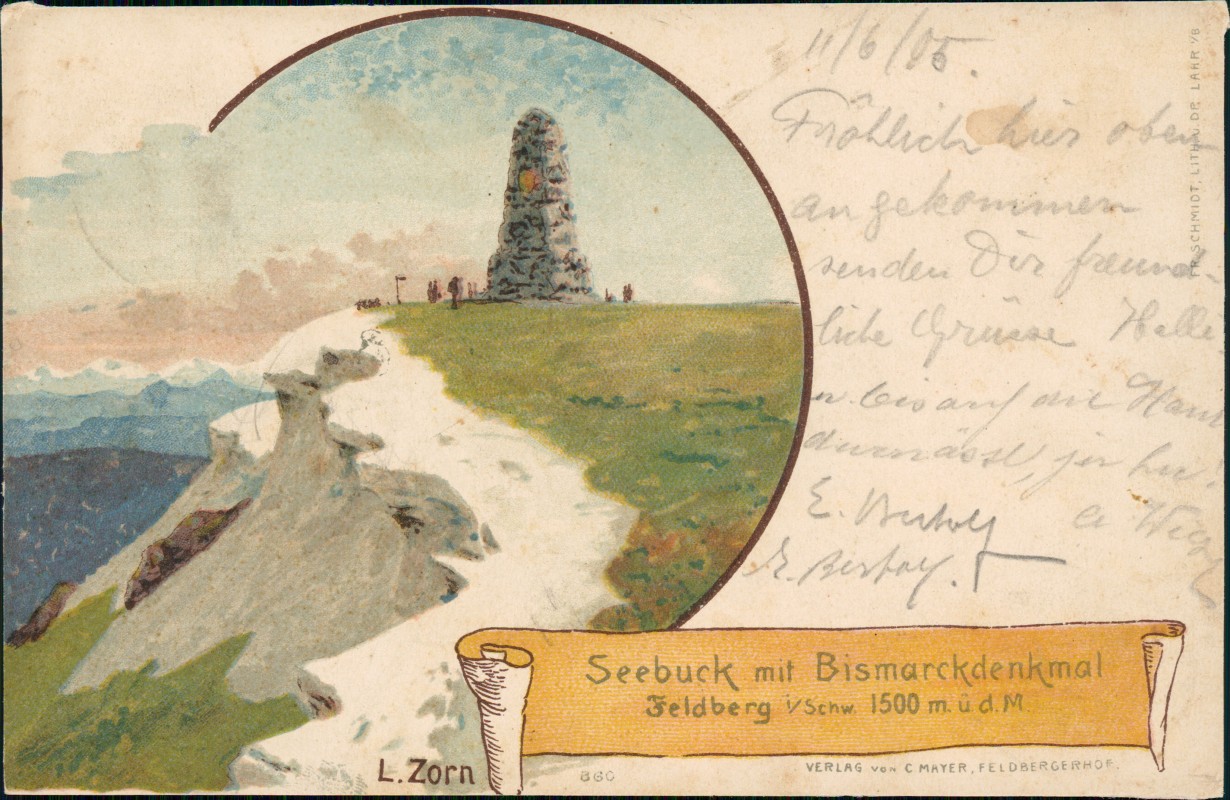 11/6/05.
Fröhlich hier oben
angekommen
senden Dir freund-
liche Grüsse
u. bis auf die
E.
E.
FR. SCHMIDT, LITH. U. DR. LAHR i/B
Seebuck mit Bismarckdenkmal
Feldberg i/Schw. 1500 m. ü. d. M.
L. Zorn
860
VERLAG von C MAYER, FELDBERGERHOF.